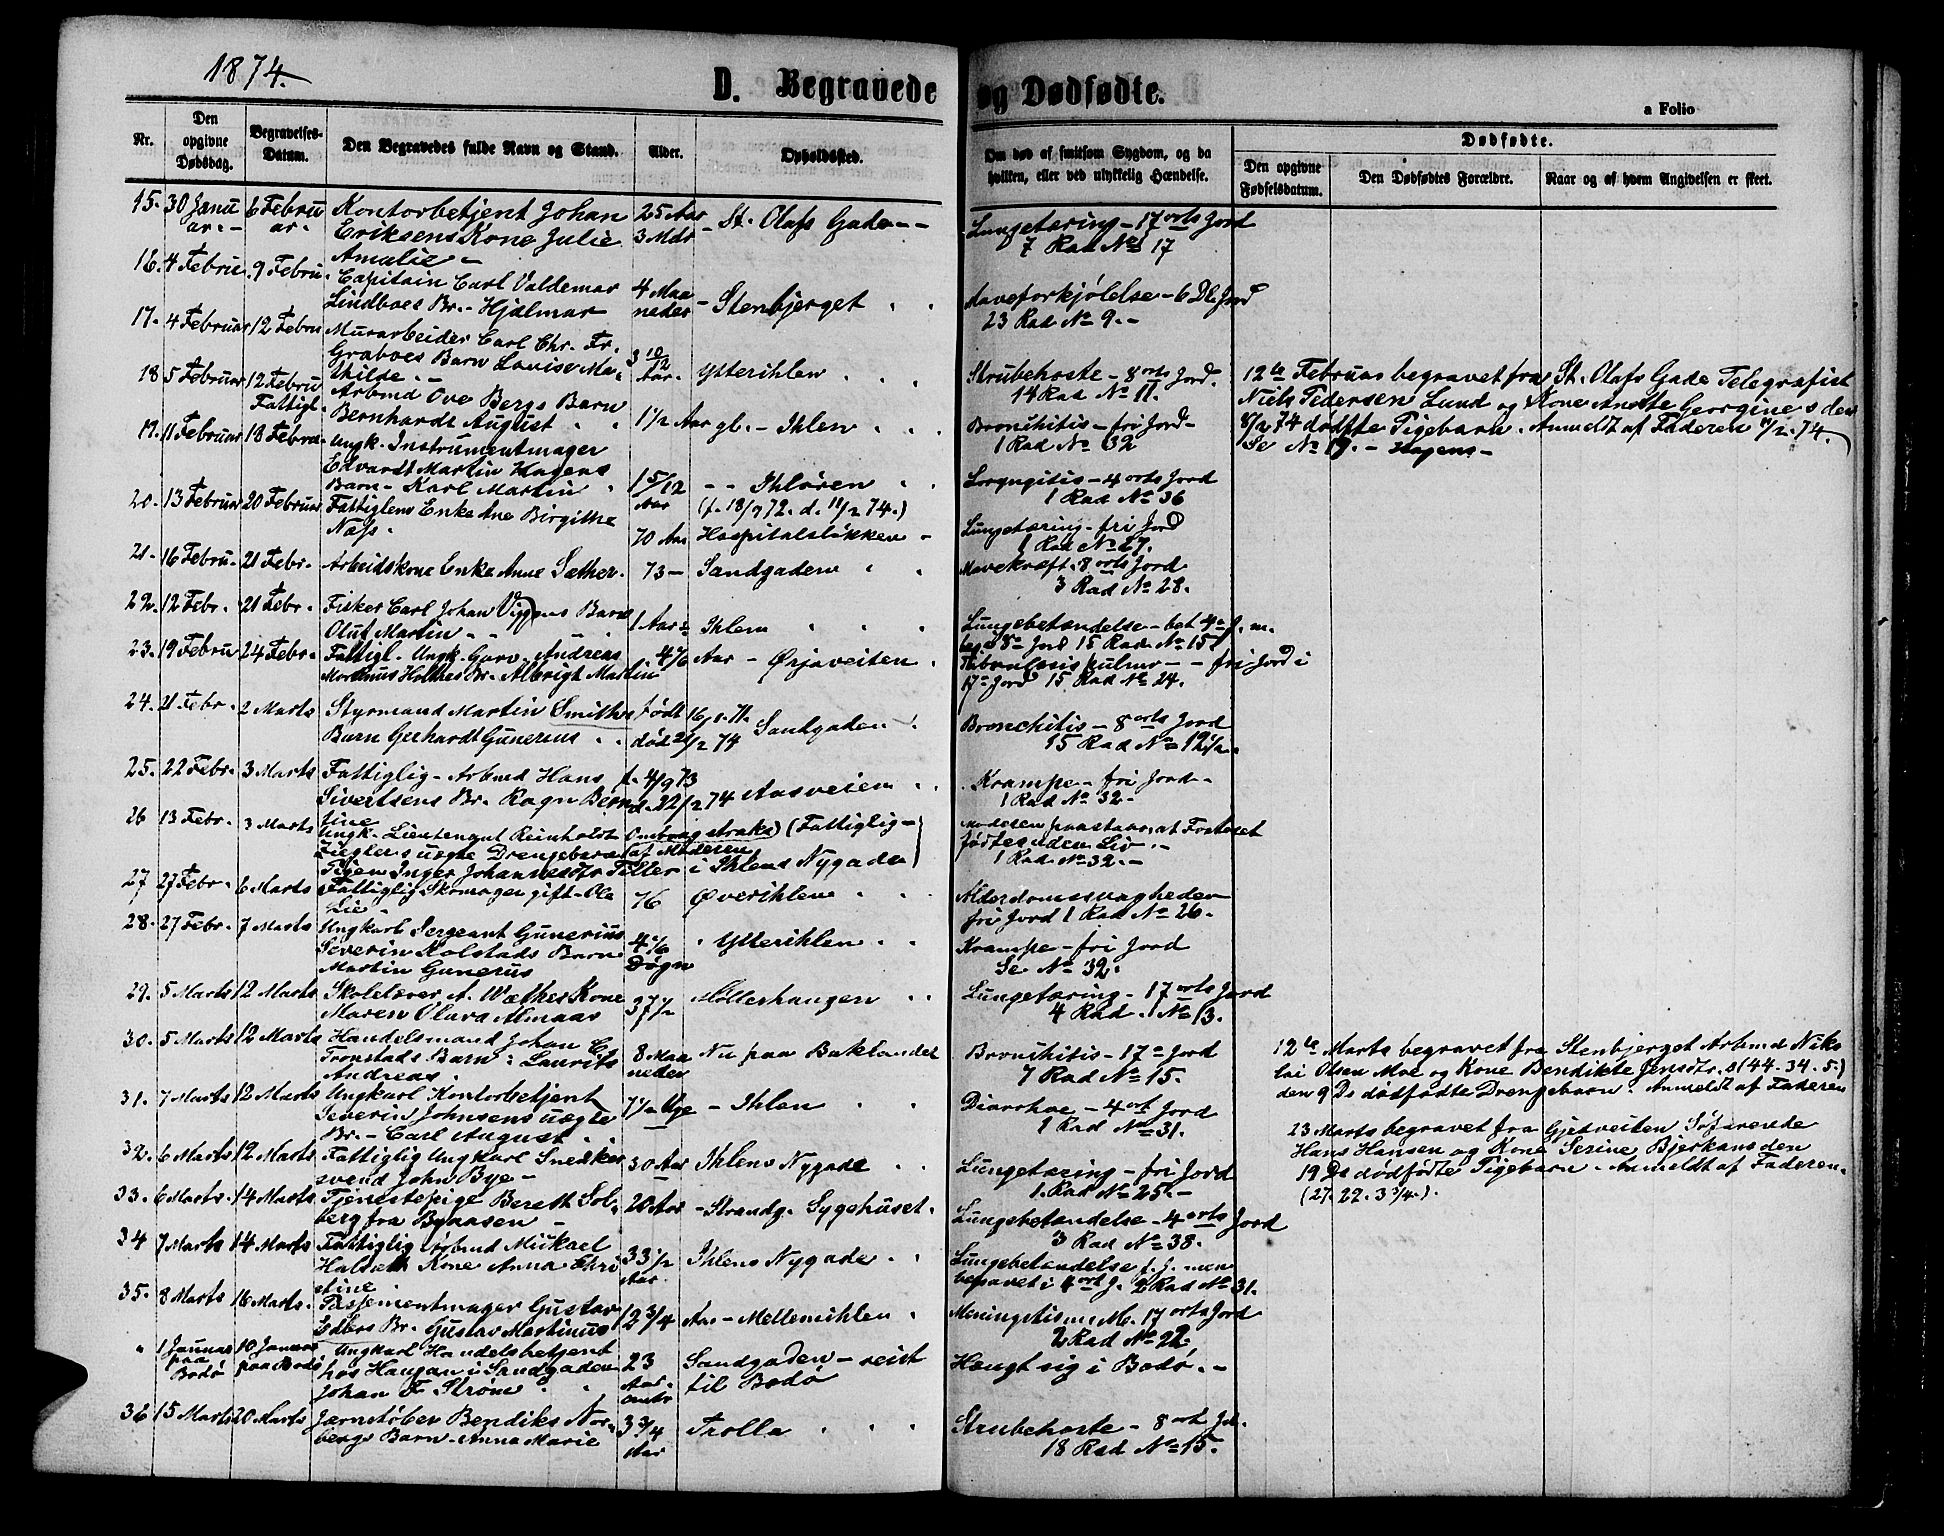 1874.
D. Begravede og Dødfødte.
a Folio
Nr.
Den opgivne Dødsdag.
Begravelses-Datum.
Den Begravedes fulde Navn og Stand.
Alder.
Opholdssted.
Om død af smitsom Sygdom, og da hvilken, eller ved ulykkelig Hændelse.
Dødfødte.
Den opgivne Fødselsdatum.
Den Dødfødtes Forældre.
Naar og af hvem Angivelsen er skeet.
15. 30 Janu 6 Febru Kontorbetjent Johan 25 Aar St. Olafs Gade Lungetæring - 17 orts Jord
ar. ar. Eriksens Kone Julie 3 Mdr 7 Rad No 17
Amalie
16. 4 Febru. 9 Febru. Capitain Carl Valdemar 4 Maa
Lindboes Br. Hjalmar neder Stenbjerget Maveforkjølelse - 6 Dl. Jord
23 Rad No 9.
17. 4 Februar 12 Febru Murarbeider Carl Chr. Fr.
Graboes Barn Lovise Ma- 3 10/12
thilde Aar. Ytterihlen Strubehoste - 8 orts Jord.
14 Rad No 11.
18 5 Februar 12 Febru Arbmd Ove Bergs Barn
Fattigl. Bernhardt August 1 1/2 Aar gl. - Ihlen Bronchitis - fri Jord
1 Rad No 32
19. 11 Februar 18 Febru. Ungk. Instrumentmager
Edvardt Martin Hagens
Barn - Karl Martin 1 5/12 Ihlören Laryngitis - 4 orts Jord
Aar (f. 18/9 72. d. 11/2 74.) 1 Rad No 36
20. 13 Februar 20 Februar Fattiglems Enke Ane Birgithe
Næss. 70 Aar Hospitalsløkken Lungetæring - fri Jord
1 Rad No 27.
21. 16 Febru. 21 Febr. Arbeidskone Enke Anne Sæther. 73 Sandgaden Mavekræft. 8 orts Jord
3 Rad No 28.
22. 12 Febr. 21 Febr. Fisker Carl Johan Viggens Barn
Oluf Martin 1 Aar Ihlen Lungebetændelse - bet 4 J. m.
beg. 8 Jord 15 Rad No 15
23. 19 Febru 24 Febr. Fattigl. Ungk. Garv. Andreas 4/6 Aar - Ørjaveiten Tuberculosis pulmo - fri Jord i
Martinus Holthes Br. Albrigt Martin 17 Jord 15 Rad No 24.
24. 21 Febr. 2 Marts Styrmand Martin Smiths født 16/1 71. Sandgaden Bronchitis - 8 orts Jord
Barn Gerhardt Gunerius død 21/2 74 15 Rad No 12 1/2.
25. 22 Febr. 3 Marts Fattiglig. Arbmd Hans f. 4/9 73 Krampe - fri Jord
Sivertsens Br. Ragn. Bern d. 22/2 74 Aasveien 1 Rad No 32.
tine
26 13 Febr. 3 Marts Ungk. Lieutenant Reinholdt Ombragt straks (Fattiglig) Moderen paastaar at Fosteret
Zieglers uægte Drengebarn (af Moderen fødtes uden Liv
Pigen Inger Johannesdtr Tiller i Ihlens Nygade) 1 Rad No 32.
27 27 Febr. 6 Marts Fattiglig Skomager gift Ole 76 Øverihlen Alderdomssvaghed
Lie. fri Jord 1 Rad No 26.
28. 27 Febr. 7 Marts Ungkarl Sergeant Gunerius
Severin Kolstads Barn 4/6 Ytterihlen Krampe - fri Jord
Martin Gunerus Døgn Se No 32.
29. 5 Marts 12 Marts Skolelærer A. Wæthes Kone 37 1/2 Møllerhaugen Lungetæring - 17 orts Jord
Maren Olava Almaas 4 Rad No 13.
30. 5 Marts 12 Marts Handelsmand Johan C.
Tronstads Barn: Laurits 8 Maa Nu paa Baklandet Bronchitis - 17 Jord
Andreas. neder 7 Rad No 15.
31. 7 Marts 12 Marts Ungkarl Kontorbetjent
Severin Johnsens uægte 7 1/2 Uge - Ihlen Diarrhoe - 4 ort Jord
Br. - Carl August 1 Rad No 31.
32. 6 Marts 12 Marts Fattiglig Ungkarl Snedker 30 Aar Ihlens Nygade Lungetæring - fri Jord
svend John Bye 1. Rad No 25.
33. 6 Marts. 14 Marts. Tjenestepige Bereth Sol- 20 Aar - Strandg. Sygehuset. Lungebetændelse - 4 orts Jord
berg fra Bynæsen 3 Rad No 38.
34 7 Marts 14 Marts. Fattiglig Arbmd Mickael
Halseth Kone Anna Chri 33 1/2 Ihlens Nygade Lungebetændelse f. J. men
stine Aar. begravet i 4 ort J. 2 Rad No 31.
35. 8 Marts 16 Marts. Possementmager Gustav
Edlers Br. Gustav Martinus 12 3/4 Aar - Mellemihlen Meningitis 17 orts Jord
2 Rad No 22.
" 1 Januar 10 Januar Ungkarl Handelsbetjent
paa Bodø paa Bodø hos Haugan i Sandgaden 23 Sandgaden - reist Hængt sig i Bodø.
Johan F. Strøm Aar. omtr til Bodø
36 15 Marts 20 Marts Jærnstøber Bendiks Nor- 3 3/4 Trolla Strubehoste - 8 ort Jd.
bergs Barn - Anna Marie Aar 18 Rad No 15.
12te Februar begravet fra St. Olafs Gade Telegrafist
Niels Pedersen Lund og Kone Anette Georgines den
8/2 74 dødfte Pigebarn. Anmeldt af Faderen 11/2 74.
Se No 19. - Hagens -
12te Marts begravet fra Stenbjerget Arbmd Niko
lai Olsen Moe og Kone Bendikte Jensdtr. s (44. 34. 5.)
den 9 Ds dødfødte Drengebarn. Anmeldt af Faderen
23 Marts begravet fra Gjetveiten Søfarende
Hans Hansen og Kone Serine Bjerkans den
19 Ds dødfødte Pigebarn. Anmeldt af Faderen.
(27. 22. 3 3/4.).